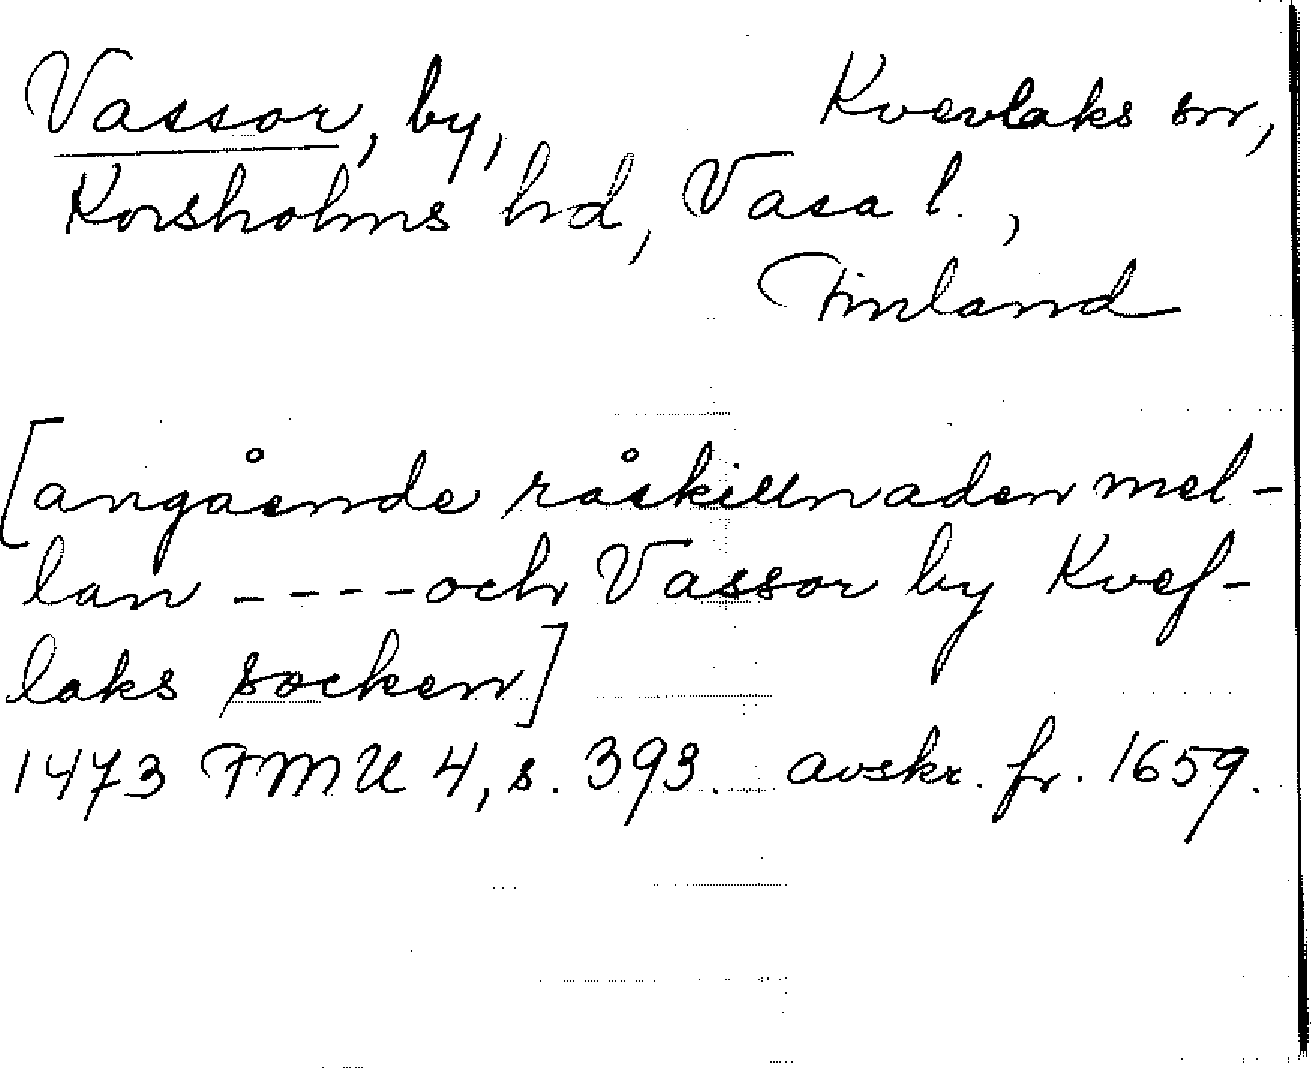 Vassor, by, Kvevlaks sn,
Korsholms hd, Vasa l.,
Finland
[angående råskillnaden mel-
lan ----och Vassor by Kvef-
laks socken]
1473 FMU 4, s. 393. avskr. fr. 1659.